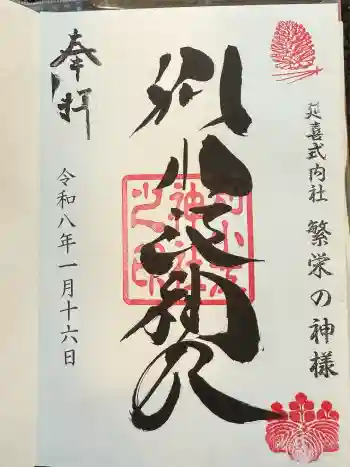 延喜式内社 繁栄の神様
別小江神社
別小江
神社
之印
奉拝
令和八年一月十六日